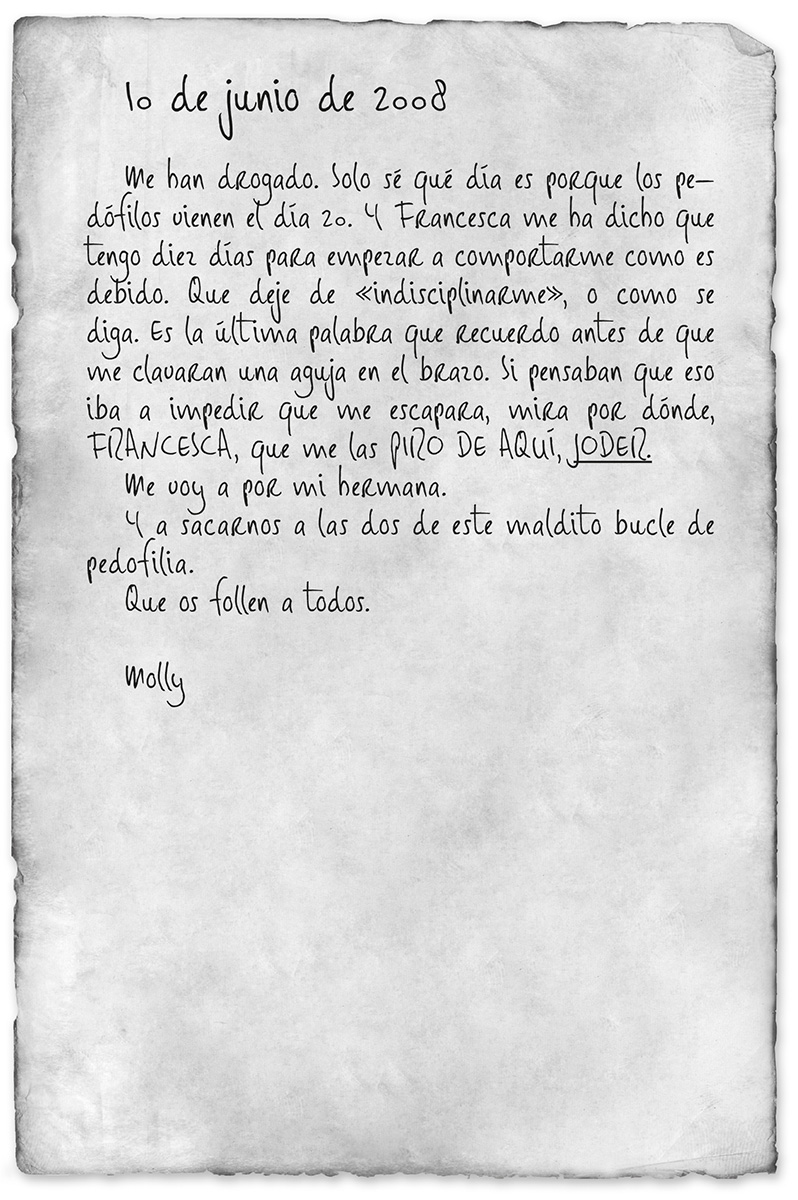 10 de junio de 2008
Me han drogado. Solo sé qué día es porque los pe-
dófilos vienen el día 20. Y Francesca me ha dicho que
tengo diez días para empezar a comportarme como es
debido. Que deje de «indisciplinarme», o como se
diga. Es la última palabra que recuerdo antes de que
me clavaran una aguja en el brazo. Si pensaban que eso
iba a impedir que me escapara, mira por dónde,
FRANCESCA, que me las PIRO DE AQUÍ, JODER.
Me voy a por mi hermana.
Y a sacarnos a las dos de este maldito bucle de
pedofilia.
Que os follen a todos.
Molly